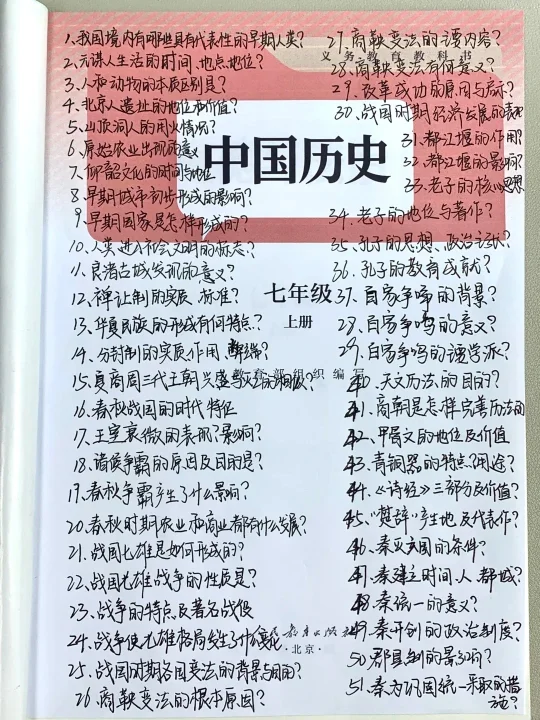 1、我国境内有哪些具有代表性的早期人类?
2、元谋人生活的时间、地点、地位?
3、人和动物的本质区别是?
4、北京人遗址的地位和价值?
5、山顶洞人的用火情况?
6、原始农业出现的意义
7、仰韶文化的时间与地位
8、早期城市初步形成的影响?
9、早期国家是怎样形成的?
10、人类进入社会文明的标志?
11、良渚古城发现的意义?
12、禅让制的实质 标准?
13、华夏民族的形成有何特点?
14、分封制的实质作用、弊端?
15、夏商周三代王朝兴盛与灭亡的
16、春秋战国的时代特征
17、王室衰微的表现?影响?
18、诸侯争霸的原因及目的是?
19、春秋争霸产生了什么影响?
20、春秋时期农业和商业都有什么发展?
21、战国七雄是如何形成的?
22、战国七雄战争的性质是?
23、战争的特点及著名战役
24、战争使七雄格局发生了什么变化
25、战国时期各国变法的背景与目的?
26、商鞅变法的根本原因?
义务教育教科书
中国历史
七年级
上册
教育部组织编写
人民教育出版社
·北京·
27、商鞅变法的主要内容?
28、商鞅变法有何意义?
29、改革成功的原因与启示?
30、战国时期经济发展的表现
31、都江堰的作用?
32、都江堰的影响?
33、老子的核心思想
34、老子的地位与著作?
35、孔子的思想、政治主张?
36、孔子的教育成就?
37、百家争鸣的背景?
38、百家争鸣的意义?
39、百家争鸣的诸学派?
40、天文历法的目的?
41、商朝是怎样完善历法的
42、甲骨文的地位及价值
43、青铜器的特点?用途?
44、《诗经》三部分及价值?
45、“楚辞”产生地及代表作?
46、秦灭六国的条件?
47、秦建立时间、人 都城?
48、秦统一的意义?
49、秦开创的政治制度?
50、郡县制的影响?
51、秦为巩固统一采取的措
施?